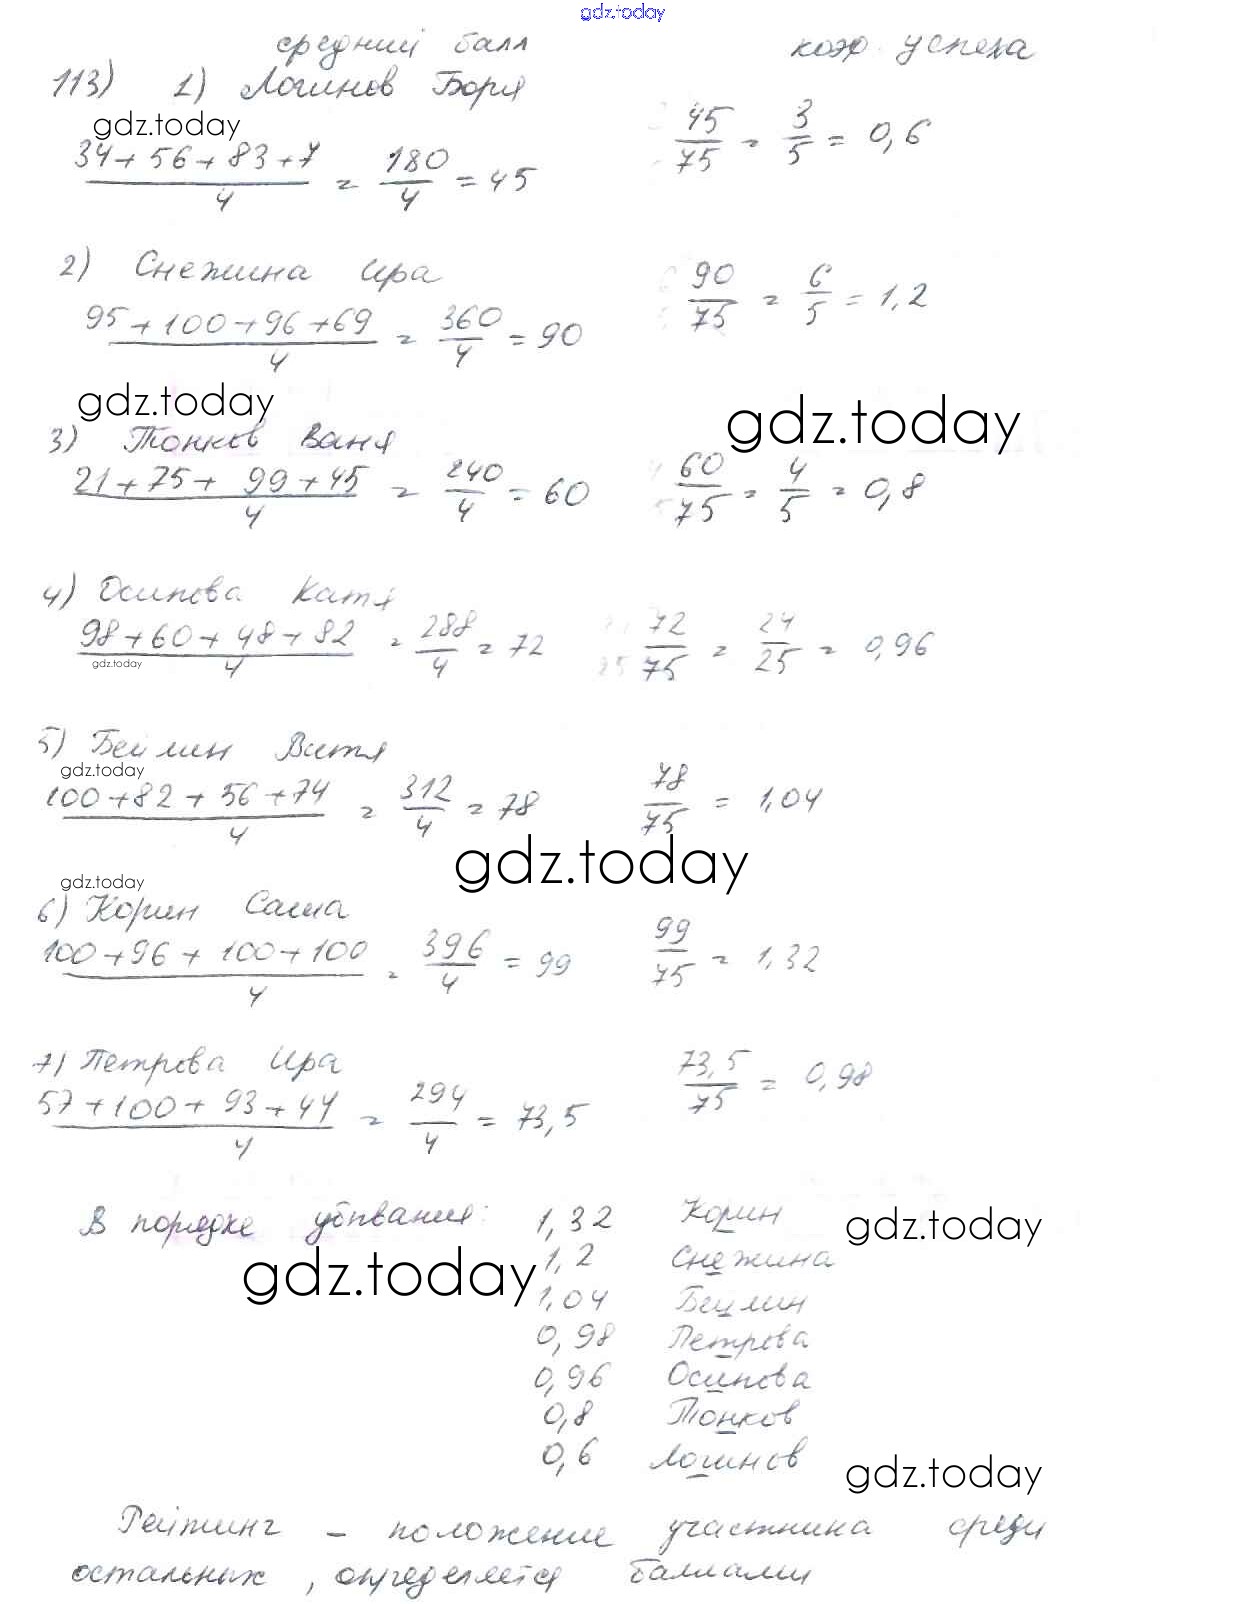 gdz.today
средний балл коэф. успеха
113) 1) Логинов Боря
gdz.today
34+56+83+7/4 = 180/4 = 45 45/75 = 3/5 = 0,6
2) Снежина Ира
95+100+96+69/4 = 360/4 = 90 90/75 = 6/5 = 1,2
gdz.today gdz.today
3) Тонков Ваня
21+75+99+45/4 = 240/4 = 60 60/75 = 4/5 = 0,8
4) Осипова Катя
98+60+48+82/4 = 288/4 = 72 72/75 = 24/25 = 0,96
gdz.today
5) Бейлин Витя
gdz.today
100+82+56+74/4 = 312/4 = 78 78/75 = 1,04
gdz.today
gdz.today
6) Корин Саша
100+96+100+100/4 = 396/4 = 99 99/75 = 1,32
7) Петрова Ира
57+100+93+44/4 = 294/4 = 73,5 73,5/75 = 0,98
В порядке убывания: 1,32 Корин
gdz.today
1,2 Снежина
gdz.today
1,04 Бейлин
0,98 Петрова
0,96 Осипова
0,8 Тонков
0,6 Логинов
gdz.today
Рейтинг – положение участника среди
остальных, определяется баллами